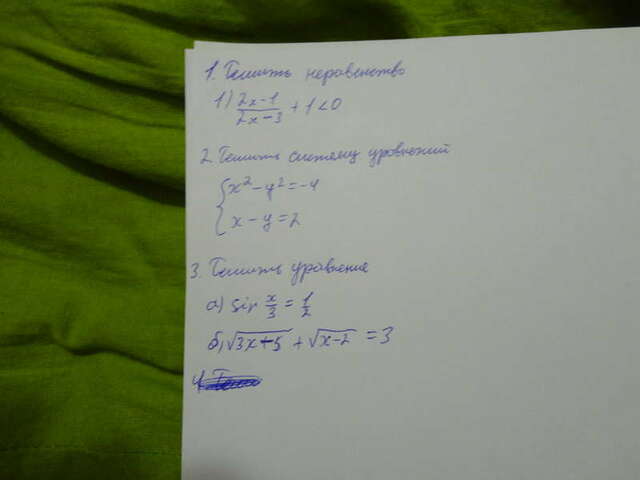 1. Решить неравенство
1) (2x-1)/(2x-3) + 1 < 0
2. Решить систему уравнений
{ x² - y² = -4
x - y = 2
3. Решить уравнение
а) sin x/3 = 1/2
б) √(3x+5) + √(x-2) = 3
4.